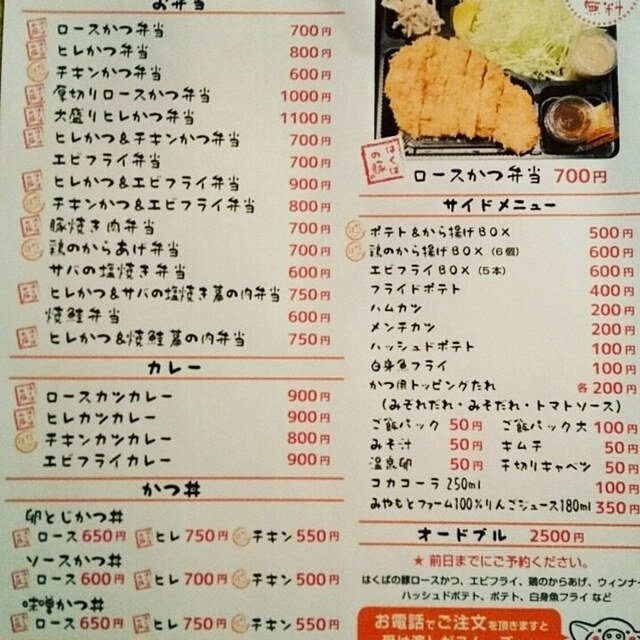 お弁当
ロースかつ弁当 700円
ヒレかつ弁当 800円
チキンかつ弁当 600円
厚切りロースかつ弁当 1000円
大盛りヒレかつ弁当 1100円
ヒレかつ&チキンかつ弁当 700円
エビフライ弁当 700円
ヒレかつ&エビフライ弁当 900円
チキンかつ&エビフライ弁当 800円
豚焼き肉弁当 700円
鶏のからあげ弁当 700円
サバの塩焼き弁当 600円
ヒレかつ&サバの塩焼き幕の内弁当 750円
焼鮭弁当 600円
ヒレかつ&焼鮭幕の内弁当 750円
カレー
ロースカツカレー 900円
ヒレカツカレー 900円
チキンカツカレー 800円
エビフライカレー 900円
かつ丼
卵とじかつ丼
ロース 650円 ヒレ 750円 チキン 550円
ソースかつ丼
ロース 600円 ヒレ 700円 チキン 500円
味噌かつ丼
ロース 650円 ヒレ 750円 チキン 550円
無料
はくばの豚
ロースかつ弁当 700円
サイドメニュー
ポテト&から揚げBOX 500円
鶏のから揚げBOX (6個) 600円
エビフライBOX (5本) 600円
フライドポテト 400円
ハムカツ 200円
メンチカツ 200円
ハッシュドポテト 100円
白身魚フライ 100円
かつ用トッピングたれ 各200円
(みぞれだれ・みそだれ・トマトソース)
ご飯パック 50円 ご飯パック大 100円
みそ汁 50円 キムチ 50円
温泉卵 50円 千切りキャベツ 50円
コカコーラ 250ml 100円
みやもとファーム100%りんごジュース180ml 350円
オードブル 2500円
★ 前日までにご予約ください。
はくばの豚ロースかつ、エビフライ、鶏のからあげ、ウィンナー
ハッシュドポテト、ポテト、白身魚フライ など
お電話でご注文を頂きますと